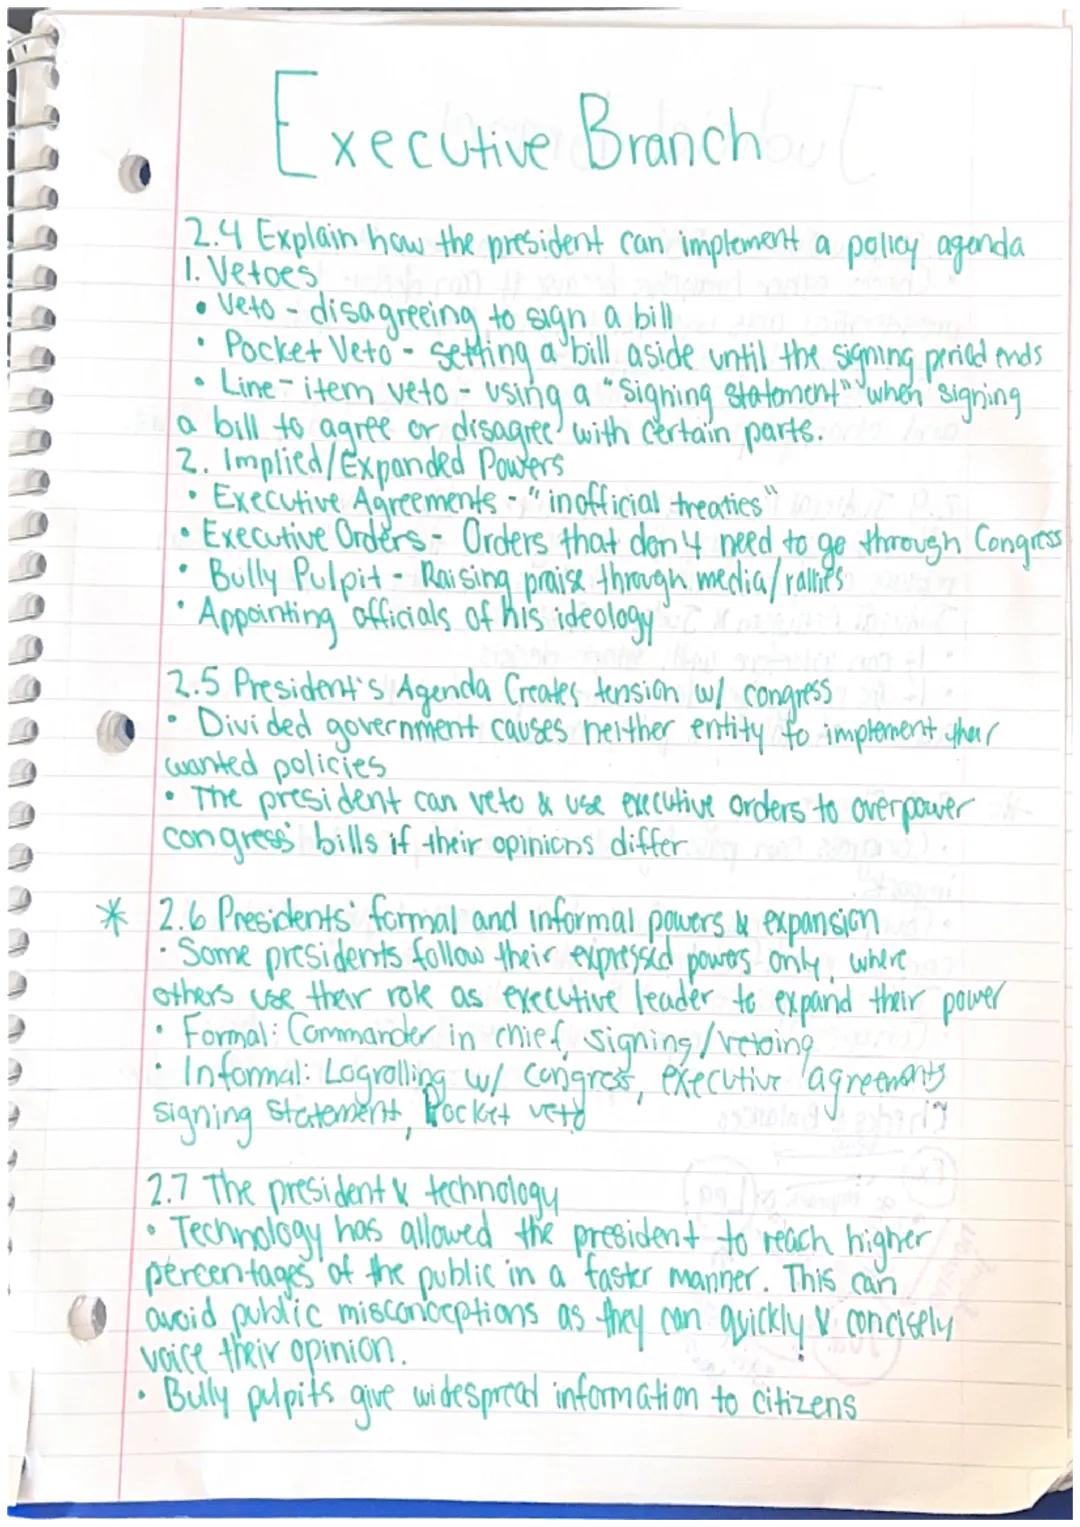 Executive Branch
2.4 Explain how the president can implement a policy agenda
1. Vetoes
• Veto - disagreeing to sign a bill
• Pocket Veto - setting a bill aside until the signing period ends
• Line-item veto - using a "Signing statement" when signing
a bill to agree or disagree with certain parts.
2. Implied/Expanded Powers
• Executive Agreements - "inofficial treaties"
• Executive Orders - Orders that don't need to go through Congress
• Bully Pulpit - Raising praise through media/rallies
• Appointing officials of his ideology
2.5 President's Agenda Creates tension w/ congress
• Divided government causes neither entity to implement their
wanted policies
• The president can veto & use executive orders to overpower
congress' bills if their opinions differ
* 2.6 Presidents' formal and informal powers & expansion
• Some presidents follow their expressed powers only, where
others use their role as executive leader to expand their power
• Formal: Commander in chief, signing/vetoing
• Informal: Logrolling w/ Congress, executive agreements
signing statement, Pocket veto
2.7 The president & technology
• Technology has allowed the president to reach higher
percentages of the public in a faster manner. This can
avoid public misconceptions as they can quickly & concisely
voice their opinion.
• Bully pulpits give widespread information to citizens